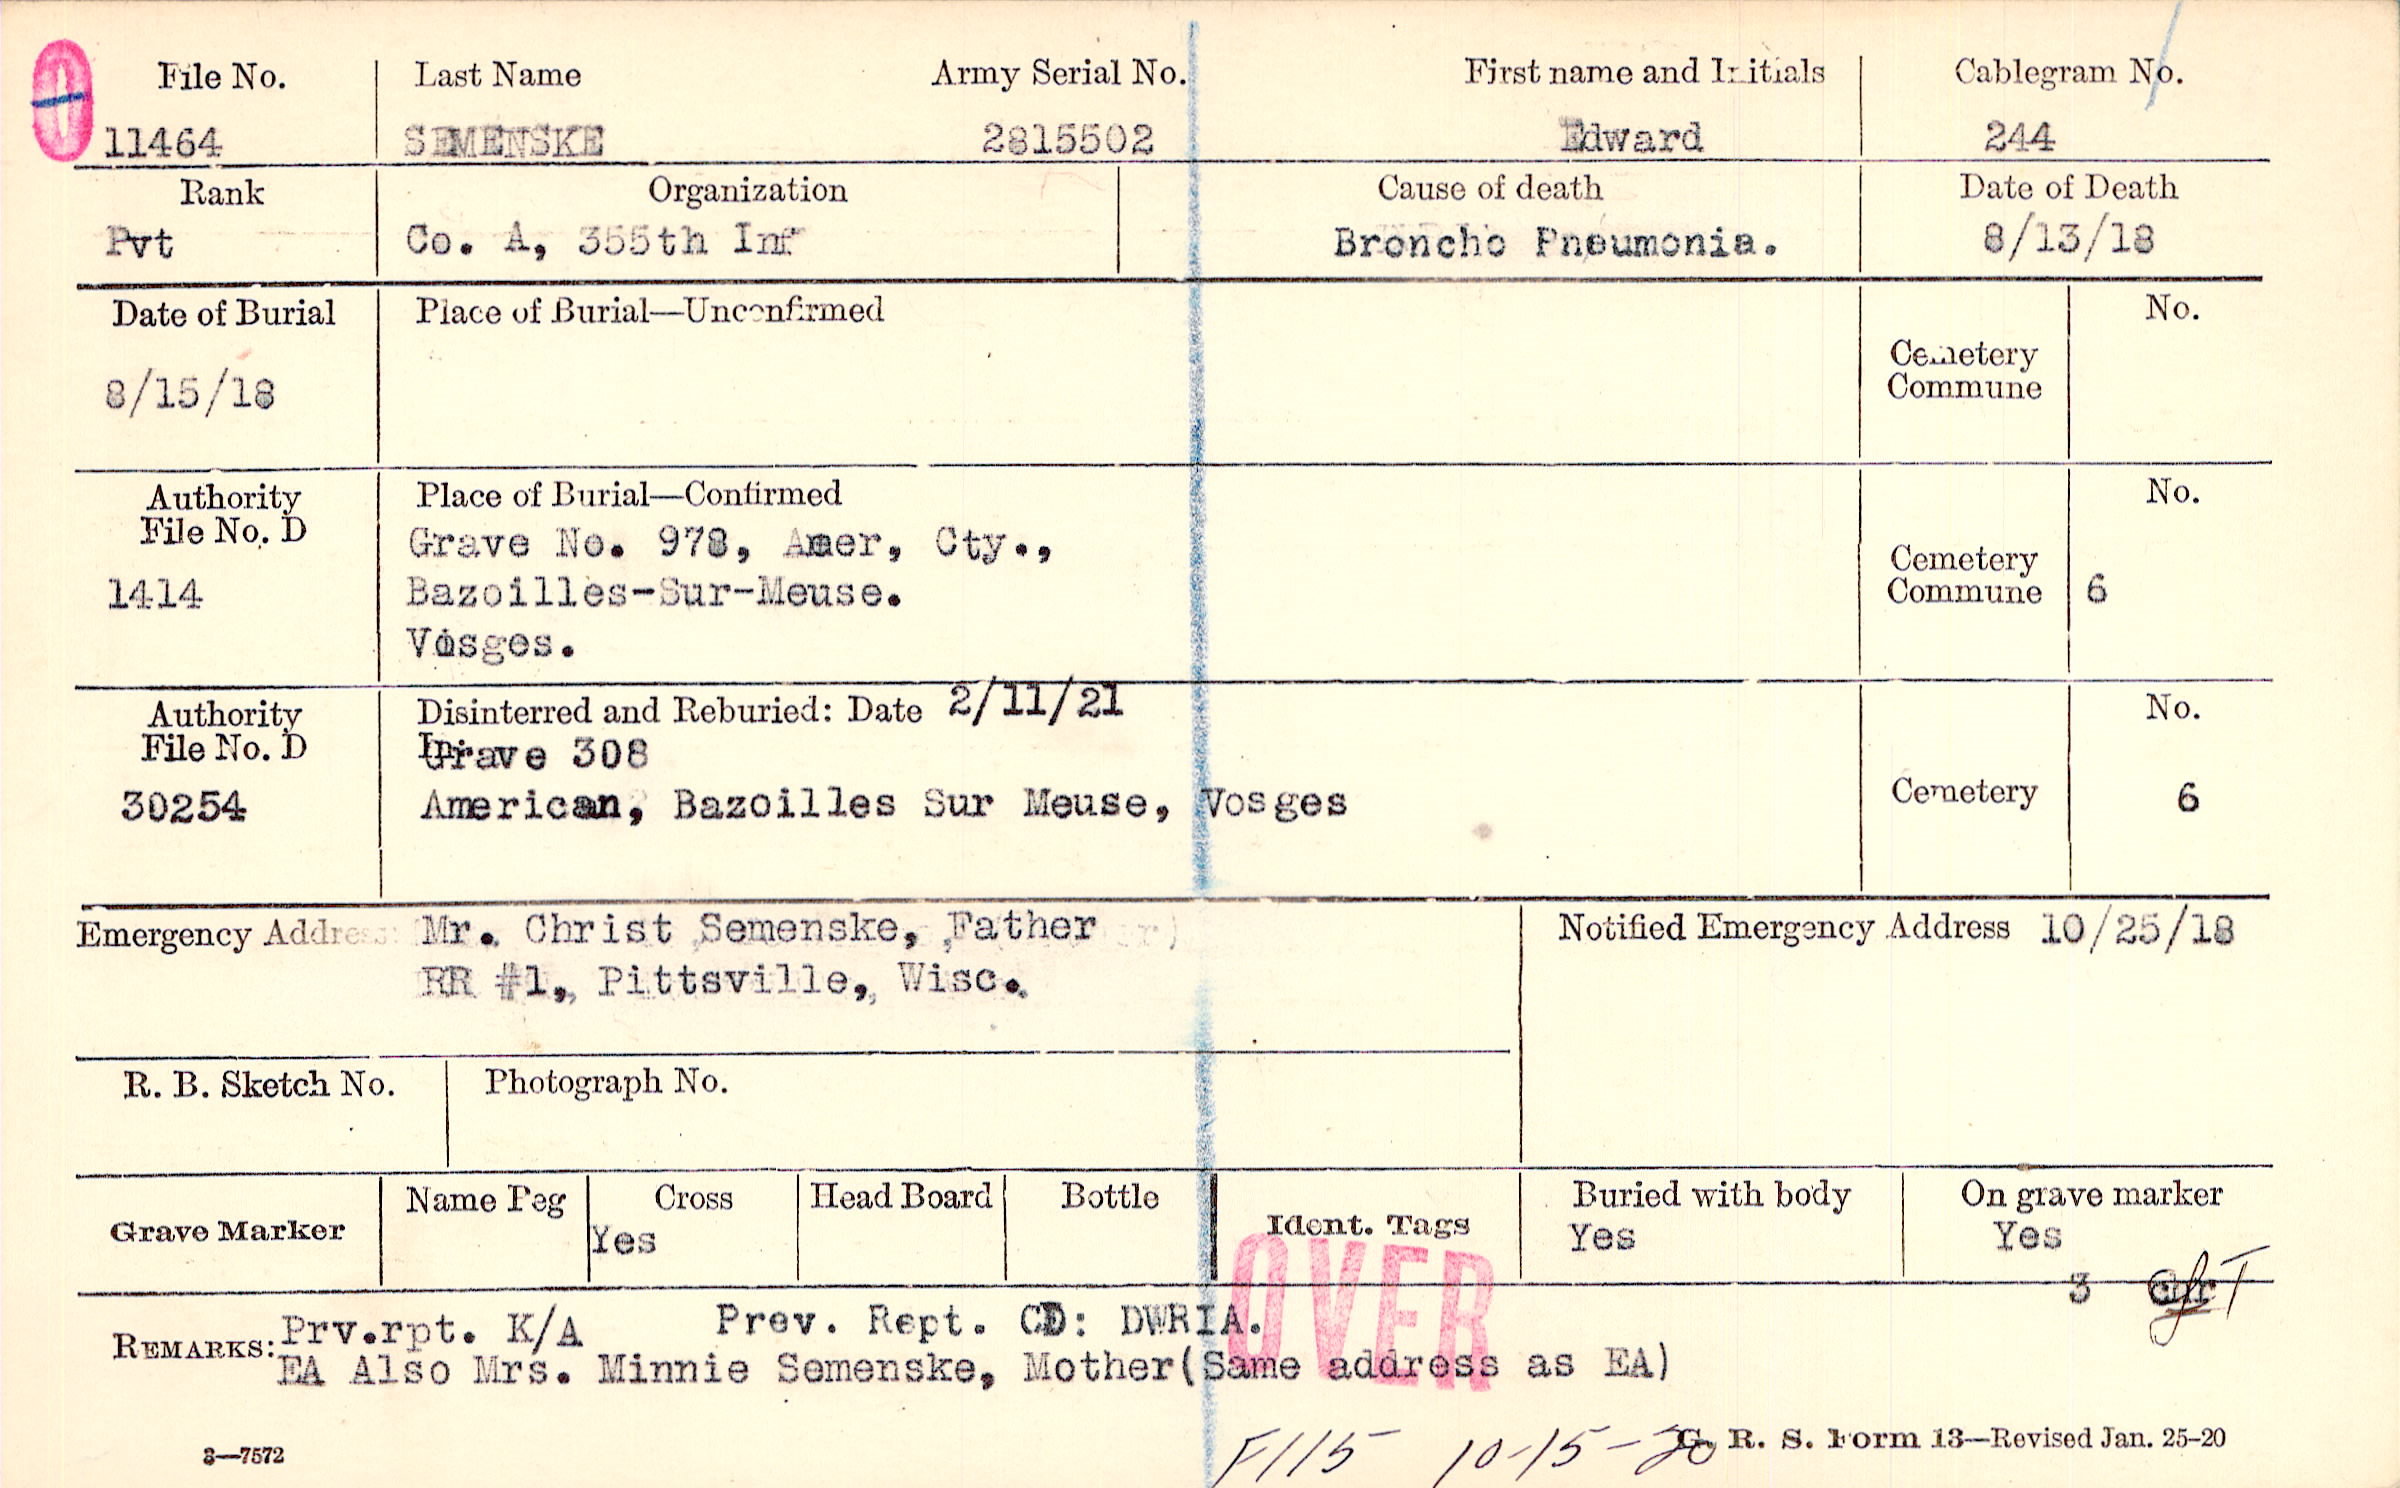 File No. Last Name Army Serial No. First name and Initials Cablegram No.
11464 SEMENSKE 2815502 Edward 244
Rank Organization Cause of death Date of Death
Pvt Co. A, 355th Inf Broncho Pneumonia. 8/13/18
Date of Burial Place of Burial—Unconfirmed No.
8/15/18 Cemetery
Commune
Authority Place of Burial—Confirmed No.
File No. D Grave No. 978, Amer, Cty.,
1414 Bazoilles-Sur-Meuse. Cemetery
Commune 6
Vosges.
Authority Disinterred and Reburied: Date 2/11/21 No.
File No. D Grave 308
30254 American, Bazoilles Sur Meuse, Vosges Cemetery 6
Emergency Address: Mr. Christ Semenske, Father Notified Emergency Address 10/25/18
RR #1, Pittsville, Wisc.
R. B. Sketch No. Photograph No.
Grave Marker Name Peg Cross Head Board Bottle Ident. Tags Buried with body On grave marker
Yes Yes Yes
OVER
3
REMARKS: Prv.rpt. K/A Prev. Rept. CD: DWRIA.
EA Also Mrs. Minnie Semenske, Mother(Same address as EA)
3—7572 F115 10-15-20 G. R. S. Form 13—Revised Jan. 25-20